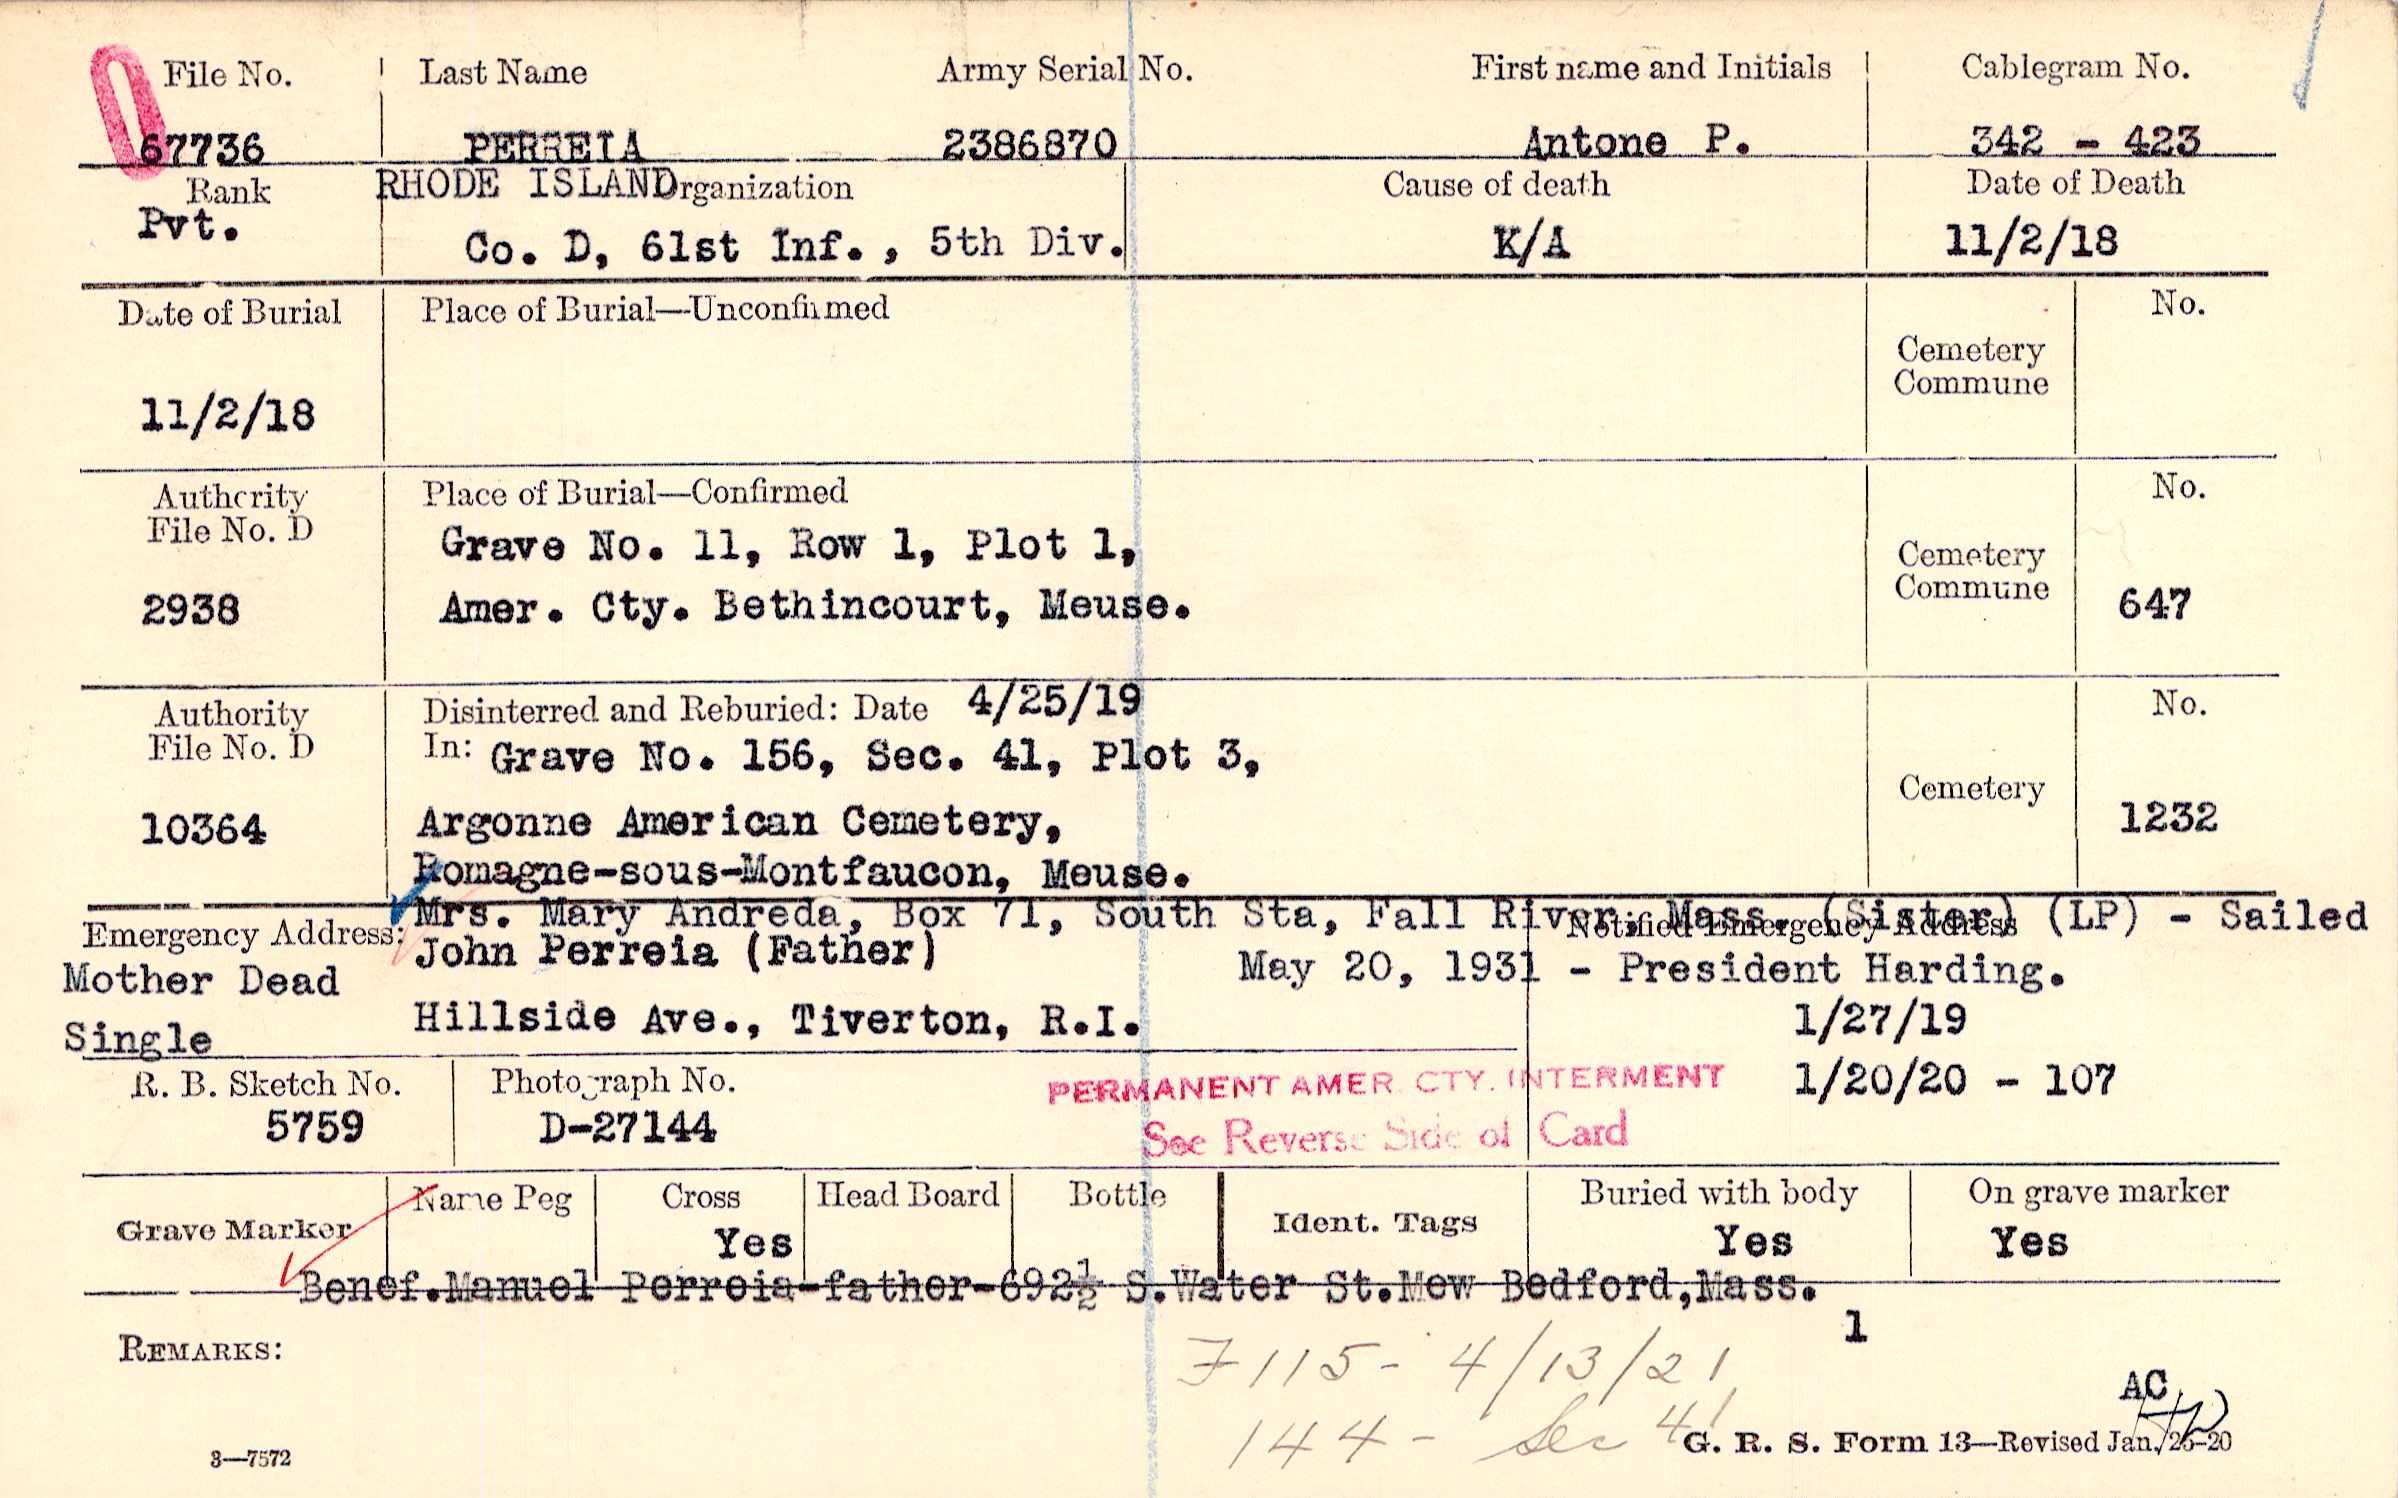 File No. Last Name Army Serial No. First name and Initials Cablegram No.
67736 PERREIA 2386870 Antone P. 342 - 423
Rank RHODE ISLAND Organization Cause of death Date of Death
Pvt. Co. D, 61st Inf., 5th Div. K/A 11/2/18
Date of Burial Place of Burial—Unconfirmed No.
Cemetery
Commune
11/2/18
Authority Place of Burial—Confirmed No.
File No. D
Grave No. 11, Row 1, Plot 1,
Cemetery
Commune
2938 Amer. Cty. Bethincourt, Meuse. 647
Authority Disinterred and Reburied: Date 4/25/19 No.
File No. D In: Grave No. 156, Sec. 41, Plot 3,
Cemetery
10364 Argonne American Cemetery, 1232
Romagne-sous-Montfaucon, Meuse.
Mrs. Mary Andreda, Box 71, South Sta, Fall River, Mass. (Sister) (LP) - Sailed
Emergency Address: John Perreia (Father) Notified Emergency Address
Mother Dead May 20, 1931 - President Harding.
Single Hillside Ave., Tiverton, R.I. 1/27/19
R. B. Sketch No. Photograph No. PERMANENT AMER. CTY. INTERMENT 1/20/20 - 107
5759 D-27144 See Reverse Side of Card
Grave Marker Name Peg Cross Head Board Bottle Ident. Tags Buried with body On grave marker
Yes Yes Yes
Benef.Manuel Perreia-father-692½ S.Water St.Mew Bedford,Mass.
1
REMARKS:
F115- 4/13/21
AC
144- Sec 41
3—7572 G. R. S. Form 13—Revised Jan. 26-20